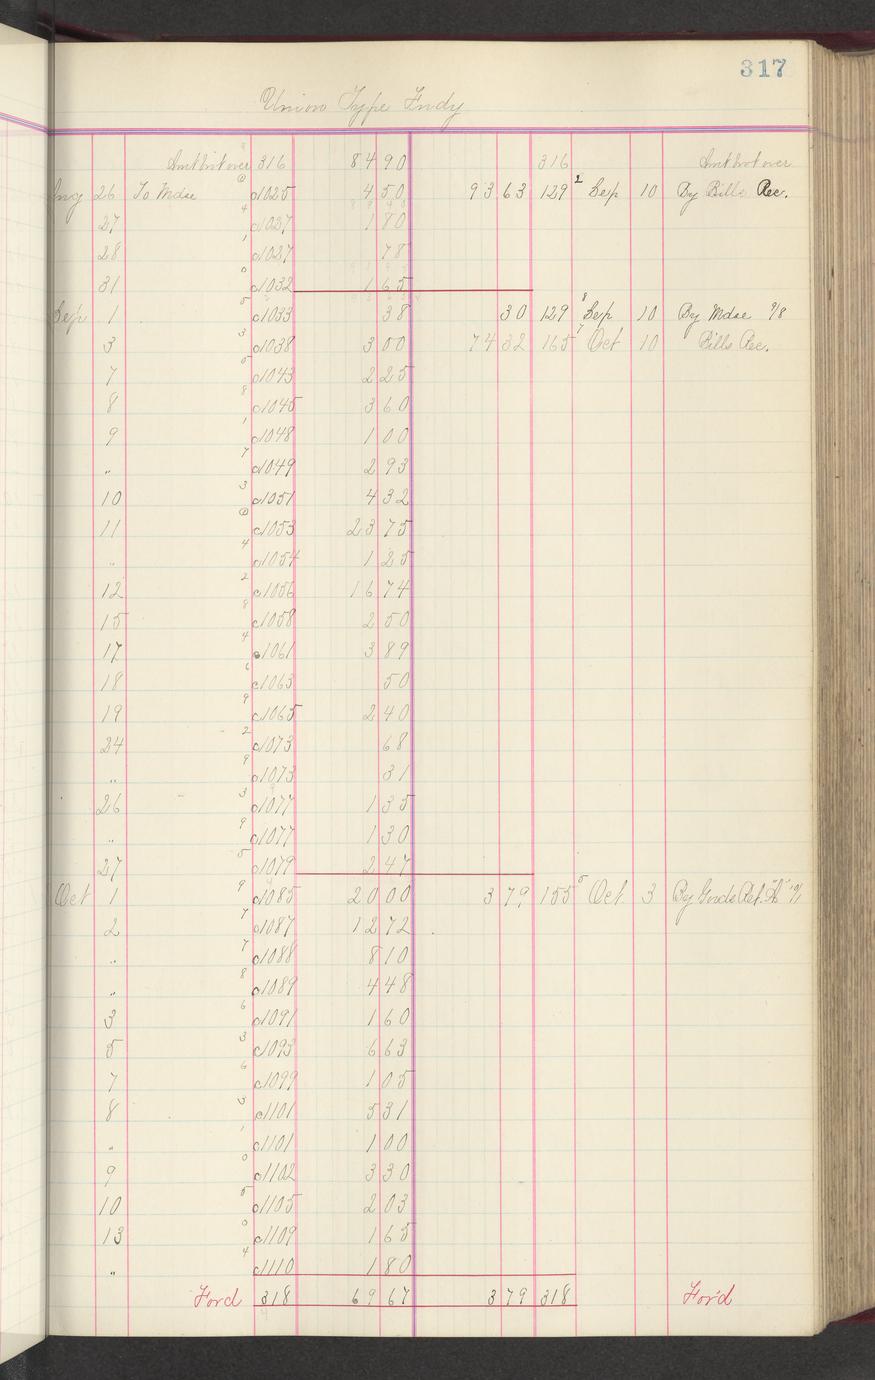 317
Union Type Fndy
Amt brot over 316 84 90 316 Amt brot over
Aug 26 To Mdse 0 c1025 4 50 93 63 129 2 Sep 10 By Bills Rec.
27 4 c1027 1 80
28 1 c1027 78
31 0 c1032 1 65
Sep 1 5 c1033 38 30 129 8 Sep 10 By Mdse 9/8
3 3 c1038 3 00 74 32 165 7 Oct 10 Bills Rec.
7 5 c1043 2 25
8 8 c1045 3 60
9 1 c1048 1 00
" 7 c1049 2 93
10 3 c1051 4 32
11 0 c1053 23 75
" 4 c1054 1 25
12 2 c1056 16 74
15 8 c1058 2 50
17 4 c1061 3 89
18 6 c1063 50
19 9 c1065 2 40
24 2 c1073 68
" 9 c1073 31
26 3 c1077 1 35
" 9 c1077 1 30
27 5 c1079 2 47
Oct 1 9 c1085 20 00 3 79 155 5 Oct 3 By Goods Ret.
2 7 c1087 12 72
" 7 c1088 8 10
" 8 c1089 4 48
3 6 c1091 1 60
5 3 c1093 6 63
7 6 c1099 1 05
8 3 c1101 5 31
" 1 c1101 1 00
9 0 c1102 3 30
10 5 c1105 2 03
13 0 c1109 1 65
" 4 c1110 1 80
Ford 318 69 67 3 79 318 Ford